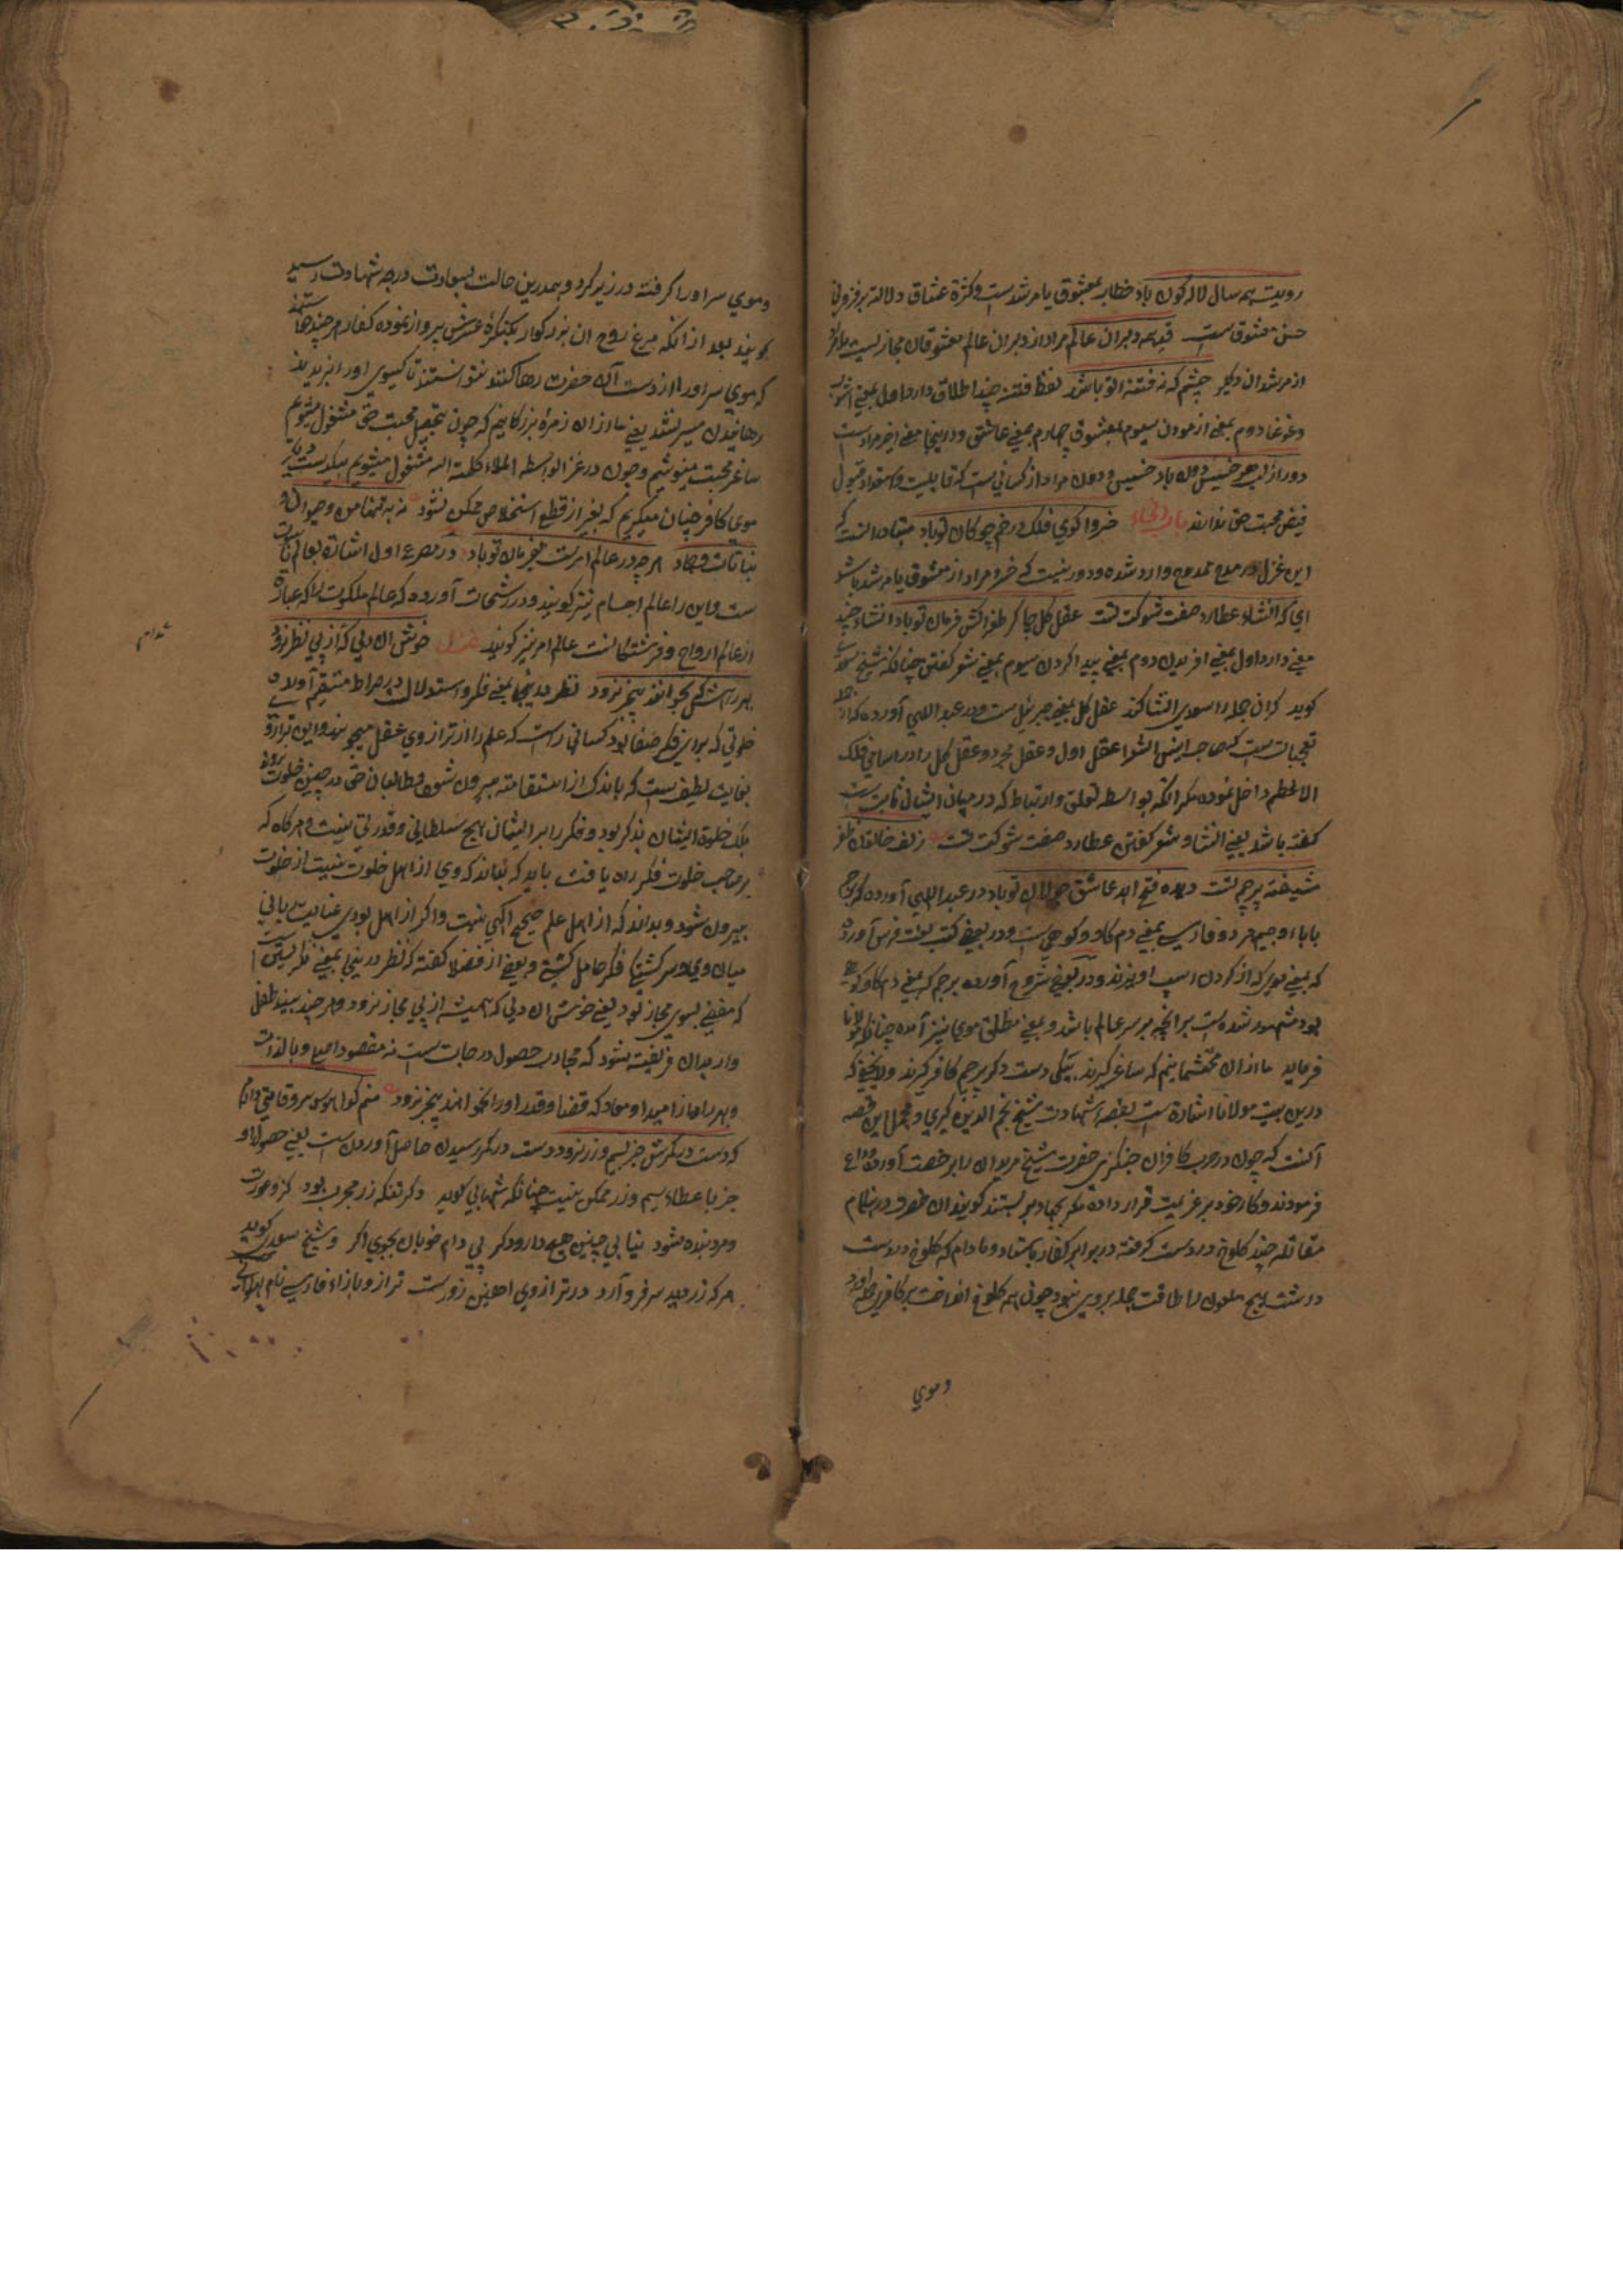 رویت همه سال لاله کون باد خطاب بمعشوق یا مرشد است وکثرة عشاق دلالة بر فزونی
حسن معشوق است قد همه دبران عالم مراد از دبران عالم معشوقان مجازیست یا
از مرشدان دیکر چشم که نه فتنه تو باشد لفظ فتنه چند اطلاق دارد اول بمعنی آشوب
وغوغا دوم بمعنی ازمودن سیوم بمعشوق چهارم بمعنی عاشق و درینجا معنی اخیر مرادست
دور از لب هر خسیس دون باد خسیس و دون مراد از کسانی است که قابلیت واستعداد قبول
فیض محبت حق ندارند باب الخاء خسروا کوی فلک در خم چوکان تو باد متبادر آنست که
این غزل در مدح ممدوح وارد شده و دور نیست که خسرو مراد از معشوق یا مرشد باشد
ای که انشاء عطارد صفت شوکت تست عقل کل چاکر طغراکش فرمان تو باد انشاء چند
معنی دارد اول بمعنی افریدن دوم بمعنی پیدا کردن سیوم بمعنی شعر کفتن چنانکه شیخ سعدی
کوید کران جمله را سعدی انشا کند عقل کل بمعنی جبرئیل است ودر عبد اللهی آورده که از
تعجبات ست که صاحب انیس الشعرا عقل اول وعقل مجرد وعقل کل را در اسامی فلک
الاعظم داخل نموده مکر آنکه بواسطه تعلق وارتباط که در میان ایشان ثابت ست
کفته باشد یعنی انشا و شعر کفتن عطارد صفت شوکت تست زلف خاتون ظفر
شیفته پرچم تست دیده فتح ابد عاشق جولان تو باد در عبد اللهی آورده که پرچم
باباء و جیم هر دو فارسی بمعنی دم کاو کوهی ست ودر بعضی کتب لغت فرس آورده
که بمعنی موی که از کردن اسپ اویزند ودر بعضی شروح آورده پرچم که بمعنی دم کاو کوهی
بود مشهور شده است بر آنچه بر سر عالم باشد و بمعنی مطلق موی نیز آمده چنانکه مولانا
فرماید ما از ان محتشمانیم که ساغر کیرند بیکی دست دکر پرچم کافر کیرند ولا یخفی که
درین بیت مولانا اشارة ست بقصه شهادت شیخ نجم الدین کبری و مجمل این قصه
آنست که چون در حرب کافران چنکیزی حضرت شیخ مریدان را بر خصت آورد وداع
فرمودند وکار خود بر عزیمت قرار داده مکر بجهاد بر بستند کویند ان حضرت در هنکام
مقاتله چند کلوخ در دست کرفته در برابر کفار باستاد و مادام که کلوخ در دست
داشت هیچ ملعون را طاقت حمله بر وی نبود چون همه کلوخ انداخت بر کافری حمله آورد
وموی
وموی سر اورا کرفته در زیر کرد و بهمدرین حالت بسعادت درجه شهادت رسید
کویند بعد از آنکه مرغ روح ان بزرکوار بکنکرهٔ عرش پرواز نموده کفار هر چند خواستند
که موی سر اورا از دست آن حضرت رها کنند نتوانستند تا کیسوی اورا نبریدند
رهانیدن میسر نشد یعنی ما از ان زمرهٔ بزرکانیم که چون بتحصیل محبت حق مشغول میشویم
ساغر محبت مینوشیم وچون در غزا بواسطه اعلاء کلمة الله مشغول میشویم بیک دست
موی کافر چنان میکیریم که بغیر از قطع استخلاص ممکن نشود نه به تنها من وحیوان و
نباتات وجماد هرچه در عالم امرست بفرمان تو باد در مصرع اول اشارة بعالم
ست واین را عالم اجسام نیز کویند ودر رشحات آورده که عالم ملکوت را که عبارة
از عالم ارواح وفرشتکانست عالم امر نیز کویند غزل خوش ان دلی که از پی نظر نرود
بهر رهت که بخوانند بیخبر نرود نظر درینجا بمعنی فکر واستدلال در صراط مستقیم آورده
خلوتی که بر این فکر صفا بود کسانی راست که علم را از ترازوی عقل میجویند واین ترازو
بغایت لطیف ست که باندک از استقامت بیرون شود طالبان حق در چنین خلوت
بلکه خلوة ایشان بذکر بود و فکر را بر ایشان هیچ سلطانی وقدرتی نیست وهرکاه که
بر صاحب خلوت فکر راه یافت باید که بداند که وی از اهل خلوت نیست از خلوت
بیرون شود وبداند که از اهل علم صحیح الهی نیست واکر از اهل بودی عنایت ربانی
میان وی و سرکشتکی فکر حایل کشتی وبعضی از فضلا کفته که نظر درینجا بمعنی نکریستن
که مفضی بسوی مجاز بود یعنی خوش ان دلی که همیشه از پی مجاز نرود وهر چند بیند طفل
وار بدان فریفته نشود که مجاز در حصول درجات ست نه مقصود اصلی و بالذات
وبهر راه از مبدا ومعاد که قضا وقدر اورا بخوانند بیخبر نرود منم کدا هوس سرو قامتی دارم
که دست در کمرش جز بسیم وزر نرود دست در کمر رسیدن حاصل آوردن است یعنی حصول او
جز با عطاء سیم وزر ممکن نیست چنانکه شهابی کوید دکر نفکه زر مجرب بود کزو عورت
ومرد بنده شود نیابی چنین هیچ دارو دکر پی دام خوبان بجوی اکر وشیخ سعدی کوید
هر که زر دید سر فرو آرد ور ترازوی اهنین زورست ترازو بازاء فارسی نام